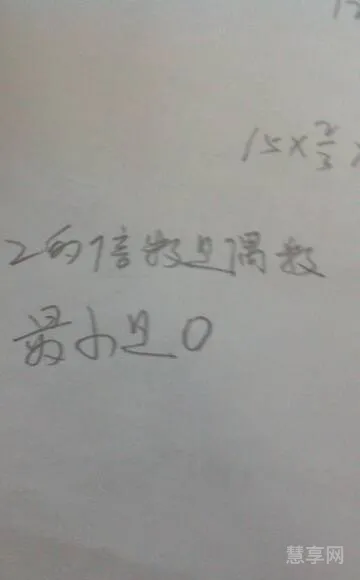 15×2/3
2的倍数是偶数
最小是0
慧享网